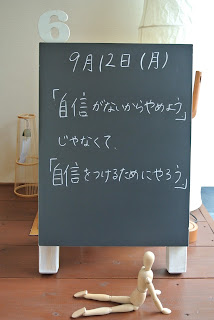 6
9月12日(月)
「自信がないからやめよう」
じゃなくて、
「自信をつけるためにやろう」